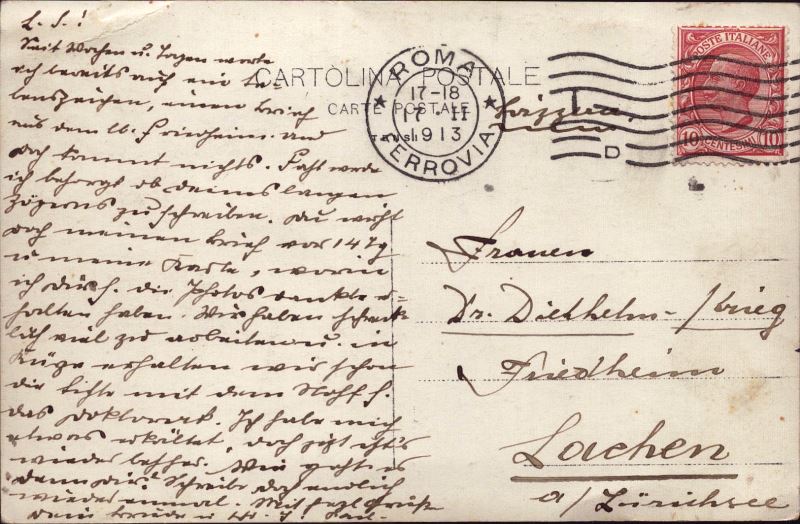 L. S.!
Seit Wochen u. Tagen warte
ich bereits auf ein Le-
benszeichen, einen Brief
aus dem lb. Friedheim und
doch kommt nichts. Fast werde
ich besorgt ob deines langen
Zögerns zu schreiben. Du wirst
doch meinen Brief vor 14 Tg
u meine Karte, worin
ich dir f. die Photos dankte er-
halten haben. Wir haben schreck-
lich viel zu arbeiten u. in
Kürze erhalten wir schon
die mit dem Stoff f.
das Doktorex. Ich habe mich
etwas erkältet, doch jetzt geht's
wieder besser. Wie geht es
denn dir? Schreibe doch endlich
wieder einmal. Mit herzl Grüße
dein Bruder u
CARTOLINA POSTALE
CARTE POSTALE
ROMA
17-18
17 · II
1913
FERROVIA
D
POSTE ITALIANE
10 CENTESIMI 10
Svizzera
Frauen
Dr. Diethelm-Krieg
Friedheim
Lachen
a/Zürichsee